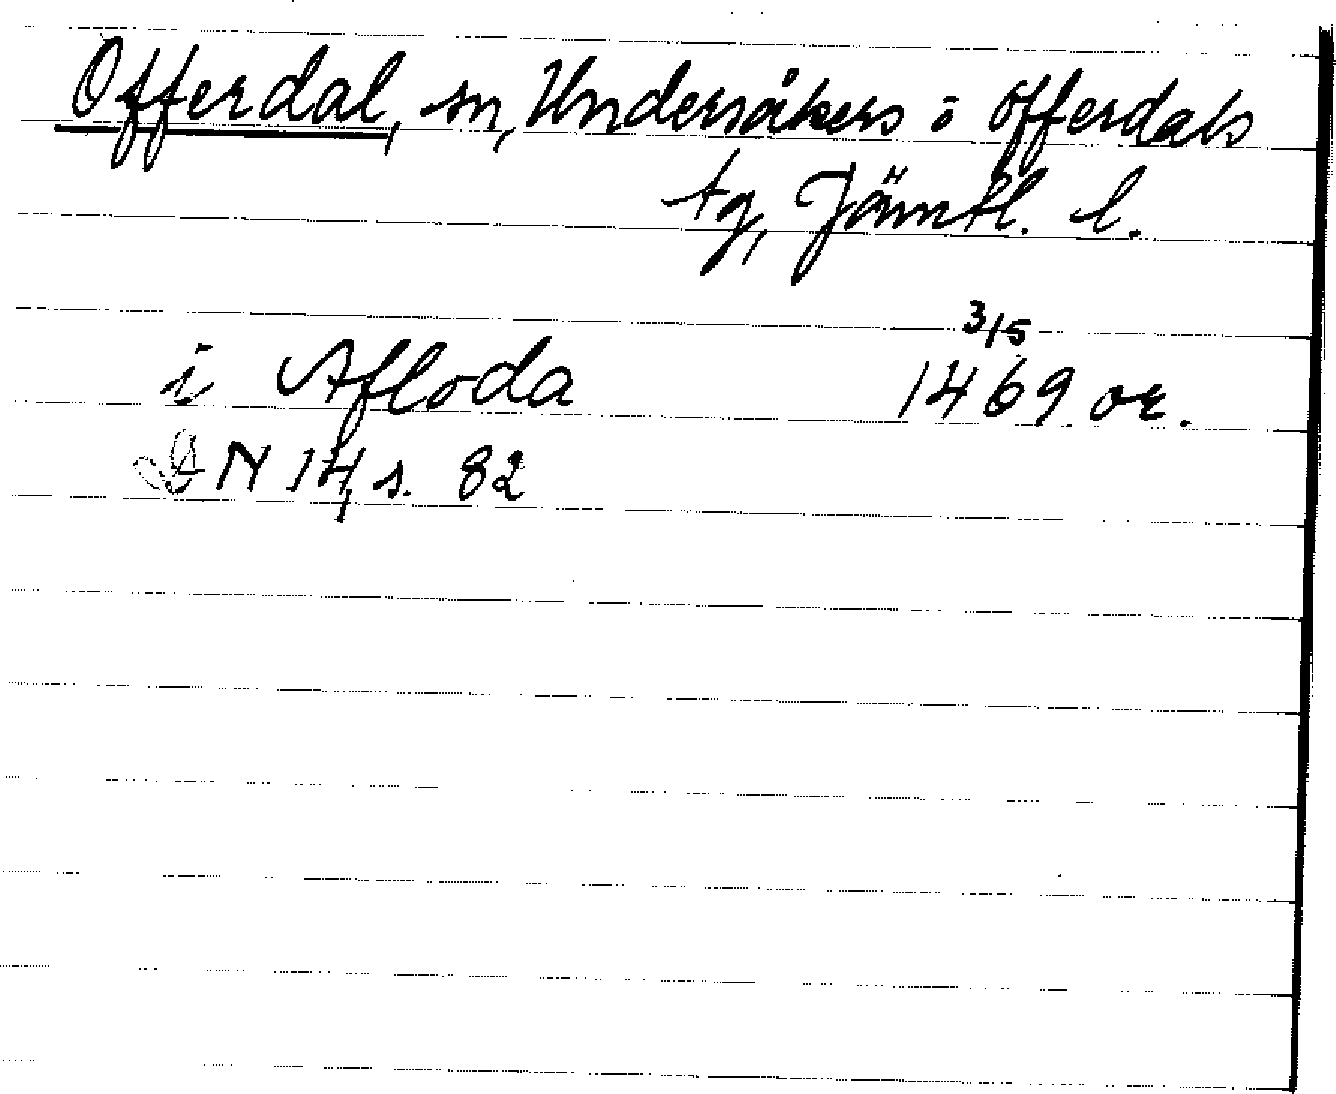 Offerdal, sn, Undersåkers o Offerdals
tg, Jämtl. l.
3/5
i Afloda 1469 or.
N 14, s. 82